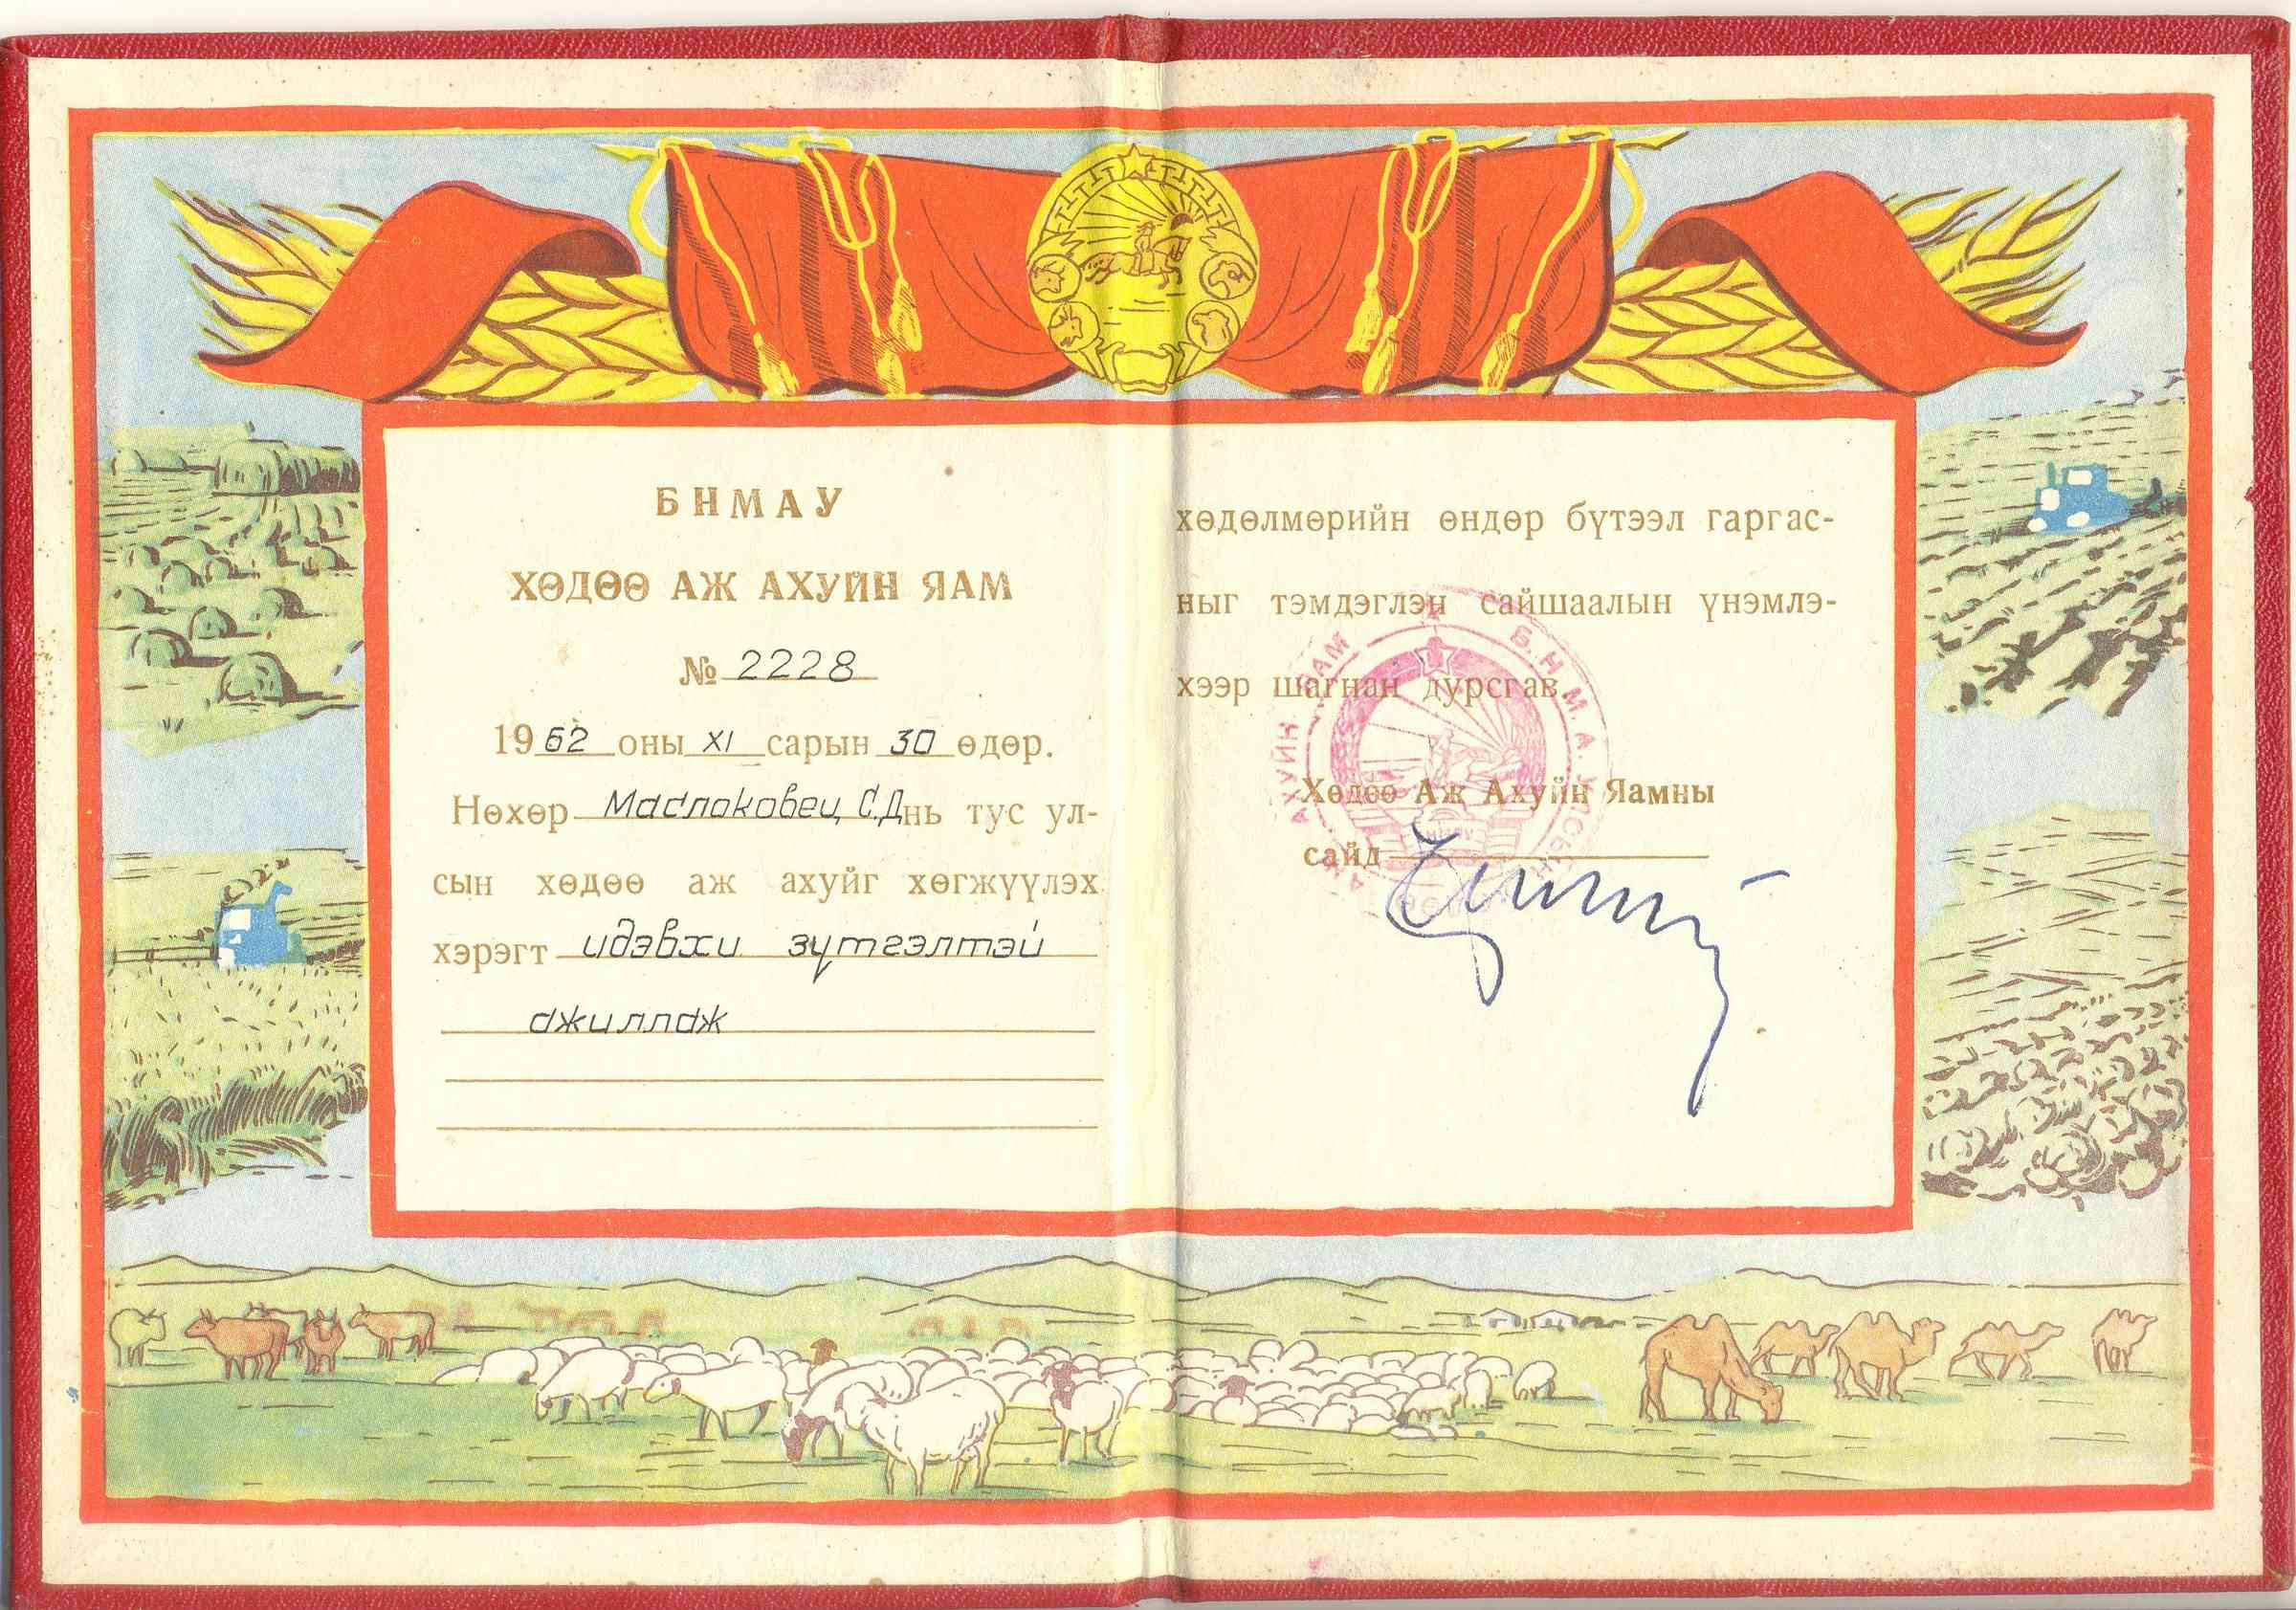 БНМАУ
ХӨДӨӨ АЖ АХУЙН ЯАМ
№ 2228
1962 оны XI сарын 30 өдөр.
Нөхөр Маслоковец С.Д нь тус ул-
сын хөдөө аж ахуйг хөгжүүлэх
хэрэгт идэвхи зүтгэлтэй
ажиллаж
хөдөлмөрийн өндөр бүтээл гаргас-
ныг тэмдэглэн сайшаалын үнэмлэ-
хээр шагнан дурсгав.
Хөдөө Аж Ахуйн Яамны
сайд
Б.Н.М.А. АЖ АХУЙН ЯАМ